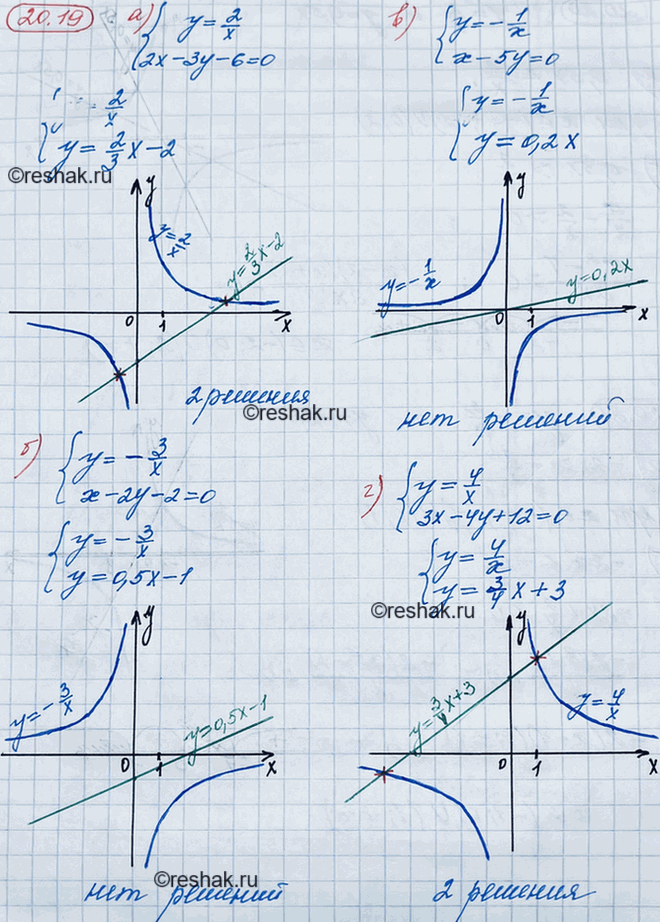 20.19
а) { y = 2/x
2x - 3y - 6 = 0
{ 2/x
y = 2/3 x - 2
©reshak.ru
y
y = 2/x
y = 2/3 x - 2
0 1 x
2 решения
©reshak.ru
в) { y = - 1/x
x - 5y = 0
{ y = - 1/x
y = 0,2x
y
y = - 1/x
y = 0,2x
0 1 x
нет решений
б) { y = - 3/x
x - 2y - 2 = 0
{ y = - 3/x
y = 0,5x - 1
y
y = - 3/x
y = 0,5x - 1
0 1 x
©reshak.ru
нет решений
г) { y = 4/x
3x - 4y + 12 = 0
{ y = 4/x
y = 3/4 x + 3
©reshak.ru
y
y = 3/4 x + 3
y = 4/x
0 1 x
2 решения